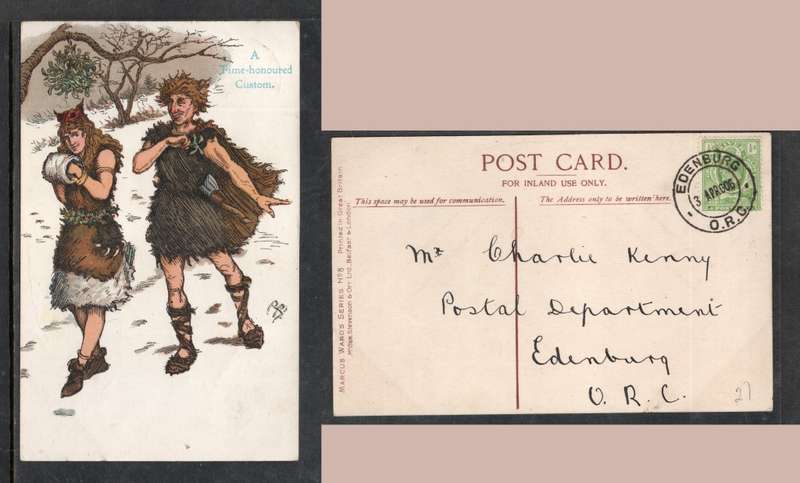 A
Time-honoured
Custom.
POST CARD.
FOR INLAND USE ONLY.
This space may be used for communication.
The Address only to be written here.
MARCUS WARD'S SERIES Nº 8 Printed in Great Britain
McCaw, Stevenson & Orr Ltd., Belfast & London.
EDENBURG
3 APR 06
O.R.C.
Mr Charlie Kenny
Postal Department
Edenburg
O. R. C.
27